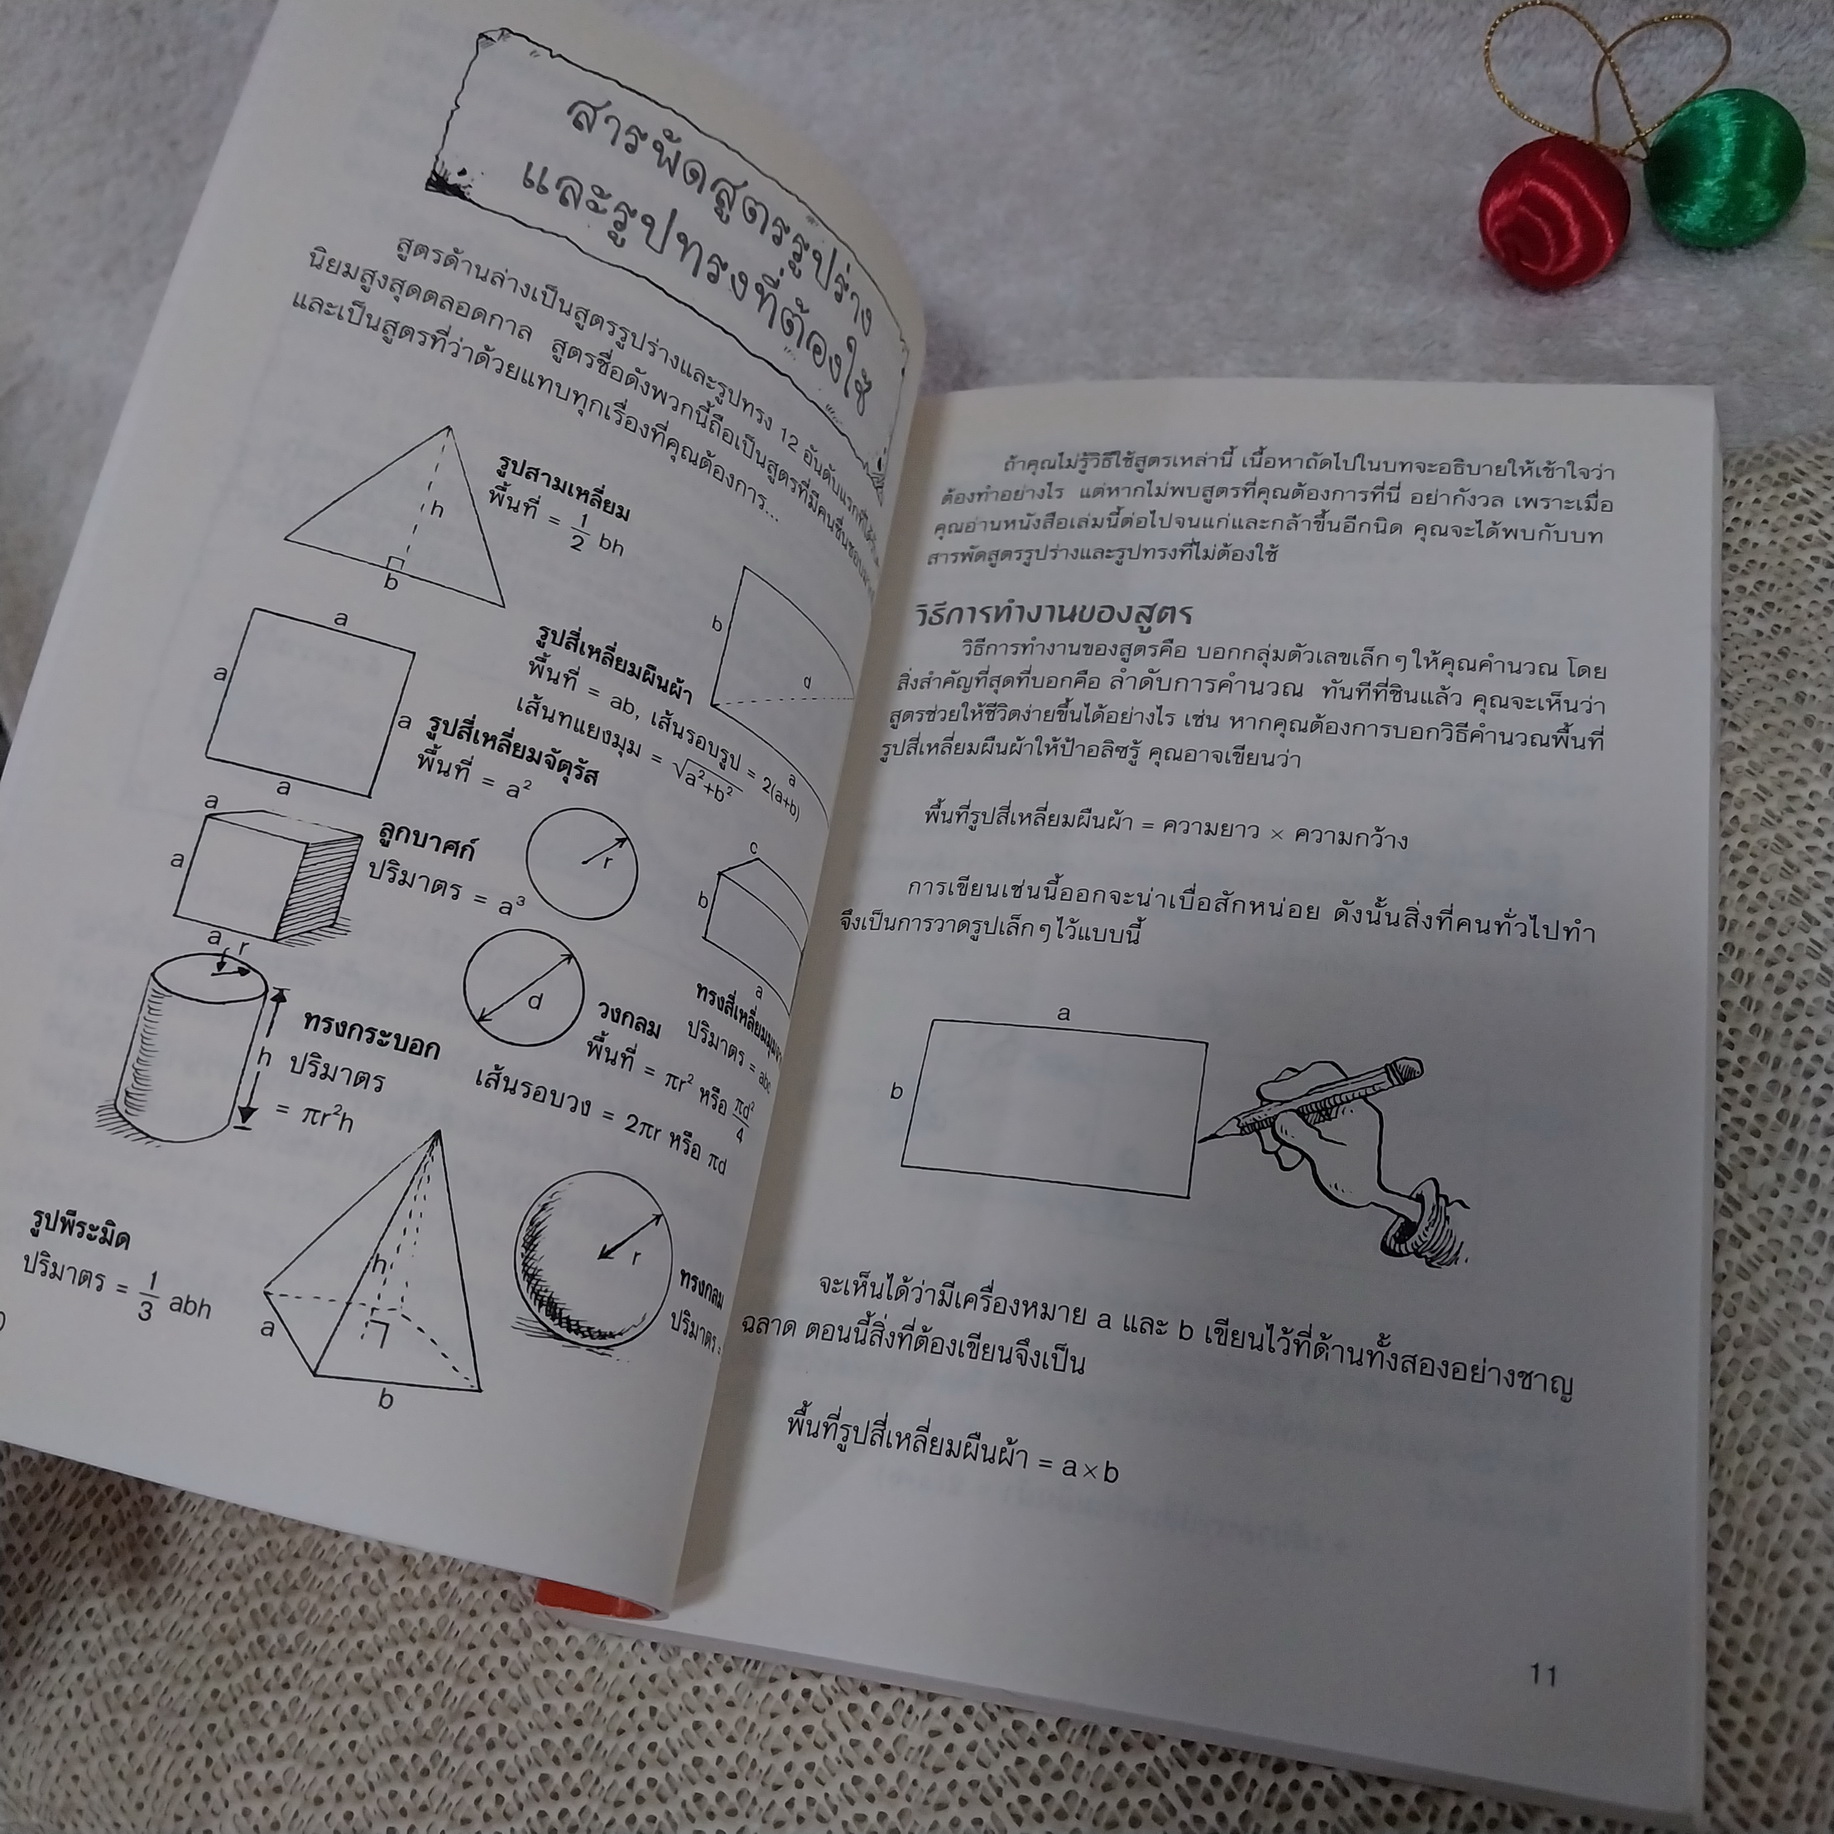 สารพัดสูตรรูปร่าง
และรูปทรงที่ต้องใช้
สูตรด้านล่างเป็นสูตรรูปร่างและรูปทรง 12 อันดับแรกที่ได้รับ
นิยมสูงสุดตลอดกาล สูตรชื่อดังพวกนี้ถือเป็นสูตรที่มีคนชื่นชอบ
และเป็นสูตรที่ว่าด้วยแทบทุกเรื่องที่คุณต้องการ...
h
b
รูปสามเหลี่ยม
พื้นที่ = 1/2 bh
a
a
a
a
รูปสี่เหลี่ยมจัตุรัส
พื้นที่ = a²
b
d
a
รูปสี่เหลี่ยมผืนผ้า
พื้นที่ = ab, เส้นรอบรูป = 2(a+b)
เส้นทแยงมุม = √a²+b²
a
a
a
ลูกบาศก์
ปริมาตร = a³
r
d
วงกลม
พื้นที่ = πr² หรือ πd²/4
เส้นรอบวง = 2πr หรือ πd
c
b
a
ปริมาตร = abc
r
h
ทรงกระบอก
ปริมาตร
= πr²h
รูปพีระมิด
ปริมาตร = 1/3 abh
h
a
b
r
ทรงกลม
ปริมาตร =
ถ้าคุณไม่รู้วิธีใช้สูตรเหล่านี้ เนื้อหาถัดไปในบทจะอธิบายให้เข้าใจว่า
ต้องทำอย่างไร แต่หากไม่พบสูตรที่คุณต้องการที่นี่ อย่ากังวล เพราะเมื่อ
คุณอ่านหนังสือเล่มนี้ต่อไปจนแก่และกล้าขึ้นอีกนิด คุณจะได้พบกับบท
สารพัดสูตรรูปร่างและรูปทรงที่ไม่ต้องใช้
วิธีการทำงานของสูตร
วิธีการทำงานของสูตรคือ บอกกลุ่มตัวเลขเล็กๆ ให้คุณคำนวณ โดย
สิ่งสำคัญที่สุดที่บอกคือ ลำดับการคำนวณ ทันทีที่ชินแล้ว คุณจะเห็นว่า
สูตรช่วยให้ชีวิตง่ายขึ้นได้อย่างไร เช่น หากคุณต้องการบอกวิธีคำนวณพื้นที่
รูปสี่เหลี่ยมผืนผ้าให้ป้าอลิซรู้ คุณอาจเขียนว่า
พื้นที่รูปสี่เหลี่ยมผืนผ้า = ความยาว × ความกว้าง
การเขียนเช่นนี้ออกจะน่าเบื่อสักหน่อย ดังนั้นสิ่งที่คนทั่วไปทำ
จึงเป็นการวาดรูปเล็กๆ ไว้แบบนี้
a
b
จะเห็นได้ว่ามีเครื่องหมาย a และ b เขียนไว้ที่ด้านทั้งสองอย่างชาญ
ฉลาด ตอนนี้สิ่งที่ต้องเขียนจึงเป็น
พื้นที่รูปสี่เหลี่ยมผืนผ้า = a×b
11